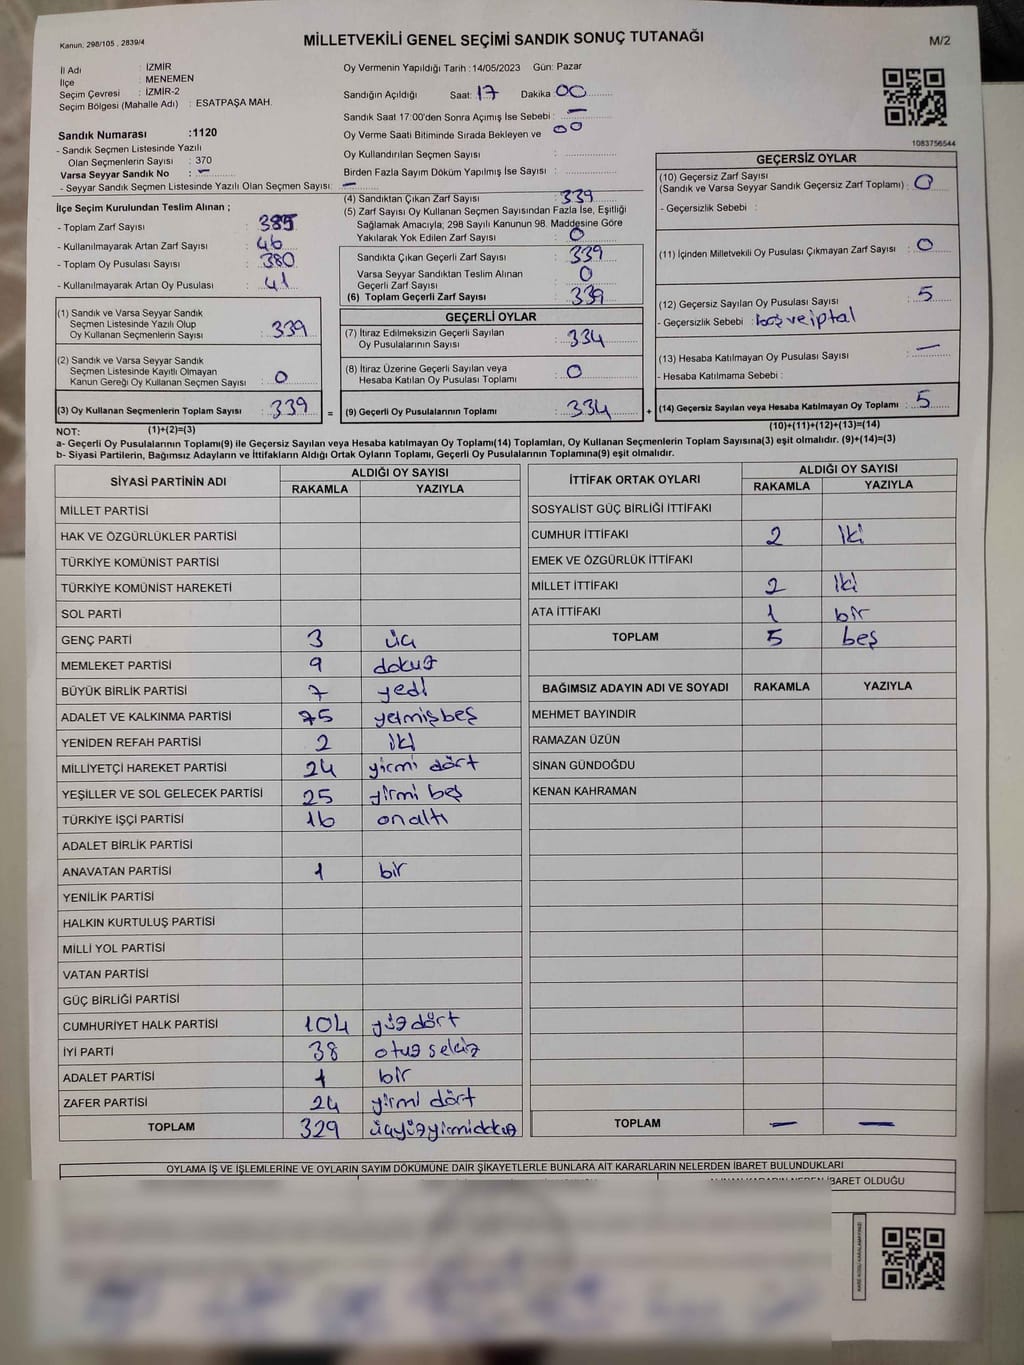 Kanun. 298/105 , 2839/4
MİLLETVEKİLİ GENEL SEÇİMİ SANDIK SONUÇ TUTANAĞI
M/2
İl Adı : İZMİR
İlçe : MENEMEN
Seçim Çevresi : İZMİR-2
Seçim Bölgesi (Mahalle Adı) : ESATPAŞA MAH.
Sandık Numarası :1120
- Sandık Seçmen Listesinde Yazılı
Olan Seçmenlerin Sayısı : 370
Varsa Seyyar Sandık No : -
- Seyyar Sandık Seçmen Listesinde Yazılı Olan Seçmen Sayısı: -
Oy Vermenin Yapıldığı Tarih :14/05/2023 Gün: Pazar
Sandığın Açıldığı Saat: 17 Dakika 00
Sandık Saat 17:00'den Sonra Açımış İse Sebebi : -
Oy Verme Saati Bitiminde Sırada Bekleyen ve 00
Oy Kullandırılan Seçmen Sayısı :
Birden Fazla Sayım Döküm Yapılmış İse Sayısı :
1083756544
İlçe Seçim Kurulundan Teslim Alınan ;
- Toplam Zarf Sayısı : 385
- Kullanılmayarak Artan Zarf Sayısı : 46
- Toplam Oy Pusulası Sayısı : 380
- Kullanılmayarak Artan Oy Pusulası : 41
(1) Sandık ve Varsa Seyyar Sandık
Seçmen Listesinde Yazılı Olup
Oy Kullanan Seçmenlerin Sayısı : 339
(2) Sandık ve Varsa Seyyar Sandık
Seçmen Listesinde Kayıtlı Olmayan
Kanun Gereği Oy Kullanan Seçmen Sayısı : 0
(3) Oy Kullanan Seçmenlerin Toplam Sayısı : 339 =
(4) Sandıktan Çıkan Zarf Sayısı : 339
(5) Zarf Sayısı Oy Kullanan Seçmen Sayısından Fazla İse, Eşitliği
Sağlamak Amacıyla; 298 Sayılı Kanunun 98. Maddesine Göre
Yakılarak Yok Edilen Zarf Sayısı : 0
Sandıkta Çıkan Geçerli Zarf Sayısı : 339
Varsa Seyyar Sandıktan Teslim Alınan
Geçerli Zarf Sayısı : 0
(6) Toplam Geçerli Zarf Sayısı : 339
GEÇERLİ OYLAR
(7) İtiraz Edilmeksizin Geçerli Sayılan
Oy Pusulalarının Sayısı : 334
(8) İtiraz Üzerine Geçerli Sayılan veya
Hesaba Katılan Oy Pusulası Toplamı : 0
(9) Geçerli Oy Pusulalarının Toplamı : 334 +
GEÇERSİZ OYLAR
(10) Geçersiz Zarf Sayısı
(Sandık ve Varsa Seyyar Sandık Geçersiz Zarf Toplamı) : 0
- Geçersizlik Sebebi :
(11) İçinden Milletvekili Oy Pusulası Çıkmayan Zarf Sayısı : 0
(12) Geçersiz Sayılan Oy Pusulası Sayısı : 5
- Geçersizlik Sebebi : boş ve iptal
(13) Hesaba Katılmayan Oy Pusulası Sayısı : -
- Hesaba Katılmama Sebebi :
(14) Geçersiz Sayılan veya Hesaba Katılmayan Oy Toplamı : 5
NOT: (1)+(2)=(3) (10)+(11)+(12)+(13)=(14)
a- Geçerli Oy Pusulalarının Toplamı(9) ile Geçersiz Sayılan veya Hesaba katılmayan Oy Toplamı(14) Toplamları, Oy Kullanan Seçmenlerin Toplam Sayısına(3) eşit olmalıdır. (9)+(14)=(3)
b- Siyasi Partilerin, Bağımsız Adayların ve İttifakların Aldığı Ortak Oyların Toplamı, Geçerli Oy Pusulalarının Toplamına(9) eşit olmalıdır.
SİYASİ PARTİNİN ADI ALDIĞI OY SAYISI
RAKAMLA YAZIYLA
MİLLET PARTİSİ
HAK VE ÖZGÜRLÜKLER PARTİSİ
TÜRKİYE KOMÜNİST PARTİSİ
TÜRKİYE KOMÜNİST HAREKETİ
SOL PARTİ
GENÇ PARTİ 3 üç
MEMLEKET PARTİSİ 9 dokuz
BÜYÜK BİRLİK PARTİSİ 7 yedi
ADALET VE KALKINMA PARTİSİ 75 yetmişbeş
YENİDEN REFAH PARTİSİ 2 iki
MİLLİYETÇİ HAREKET PARTİSİ 24 yirmi dört
YEŞİLLER VE SOL GELECEK PARTİSİ 25 yirmi beş
TÜRKİYE İŞÇİ PARTİSİ 16 onaltı
ADALET BİRLİK PARTİSİ
ANAVATAN PARTİSİ 1 bir
YENİLİK PARTİSİ
HALKIN KURTULUŞ PARTİSİ
MİLLİ YOL PARTİSİ
VATAN PARTİSİ
GÜÇ BİRLİĞİ PARTİSİ
CUMHURİYET HALK PARTİSİ 104 yüz dört
İYİ PARTİ 38 otuz sekiz
ADALET PARTİSİ 1 bir
ZAFER PARTİSİ 24 yirmi dört
TOPLAM 329
İTTİFAK ORTAK OYLARI ALDIĞI OY SAYISI
RAKAMLA YAZIYLA
SOSYALİST GÜÇ BİRLİĞİ İTTİFAKI
CUMHUR İTTİFAKI 2 iki
EMEK VE ÖZGÜRLÜK İTTİFAKI
MİLLET İTTİFAKI 2 iki
ATA İTTİFAKI 1 bir
TOPLAM 5 beş
BAĞIMSIZ ADAYIN ADI VE SOYADI RAKAMLA YAZIYLA
MEHMET BAYINDIR
RAMAZAN ÜZÜN
SİNAN GÜNDOĞDU
KENAN KAHRAMAN
TOPLAM - -
OYLAMA İŞ VE İŞLEMLERİNE VE OYLARIN SAYIM DÖKÜMÜNE DAİR ŞİKAYETLERLE BUNLARA AİT KARARLARIN NELERDEN İBARET BULUNDUKLARI
İBARET OLDUĞU